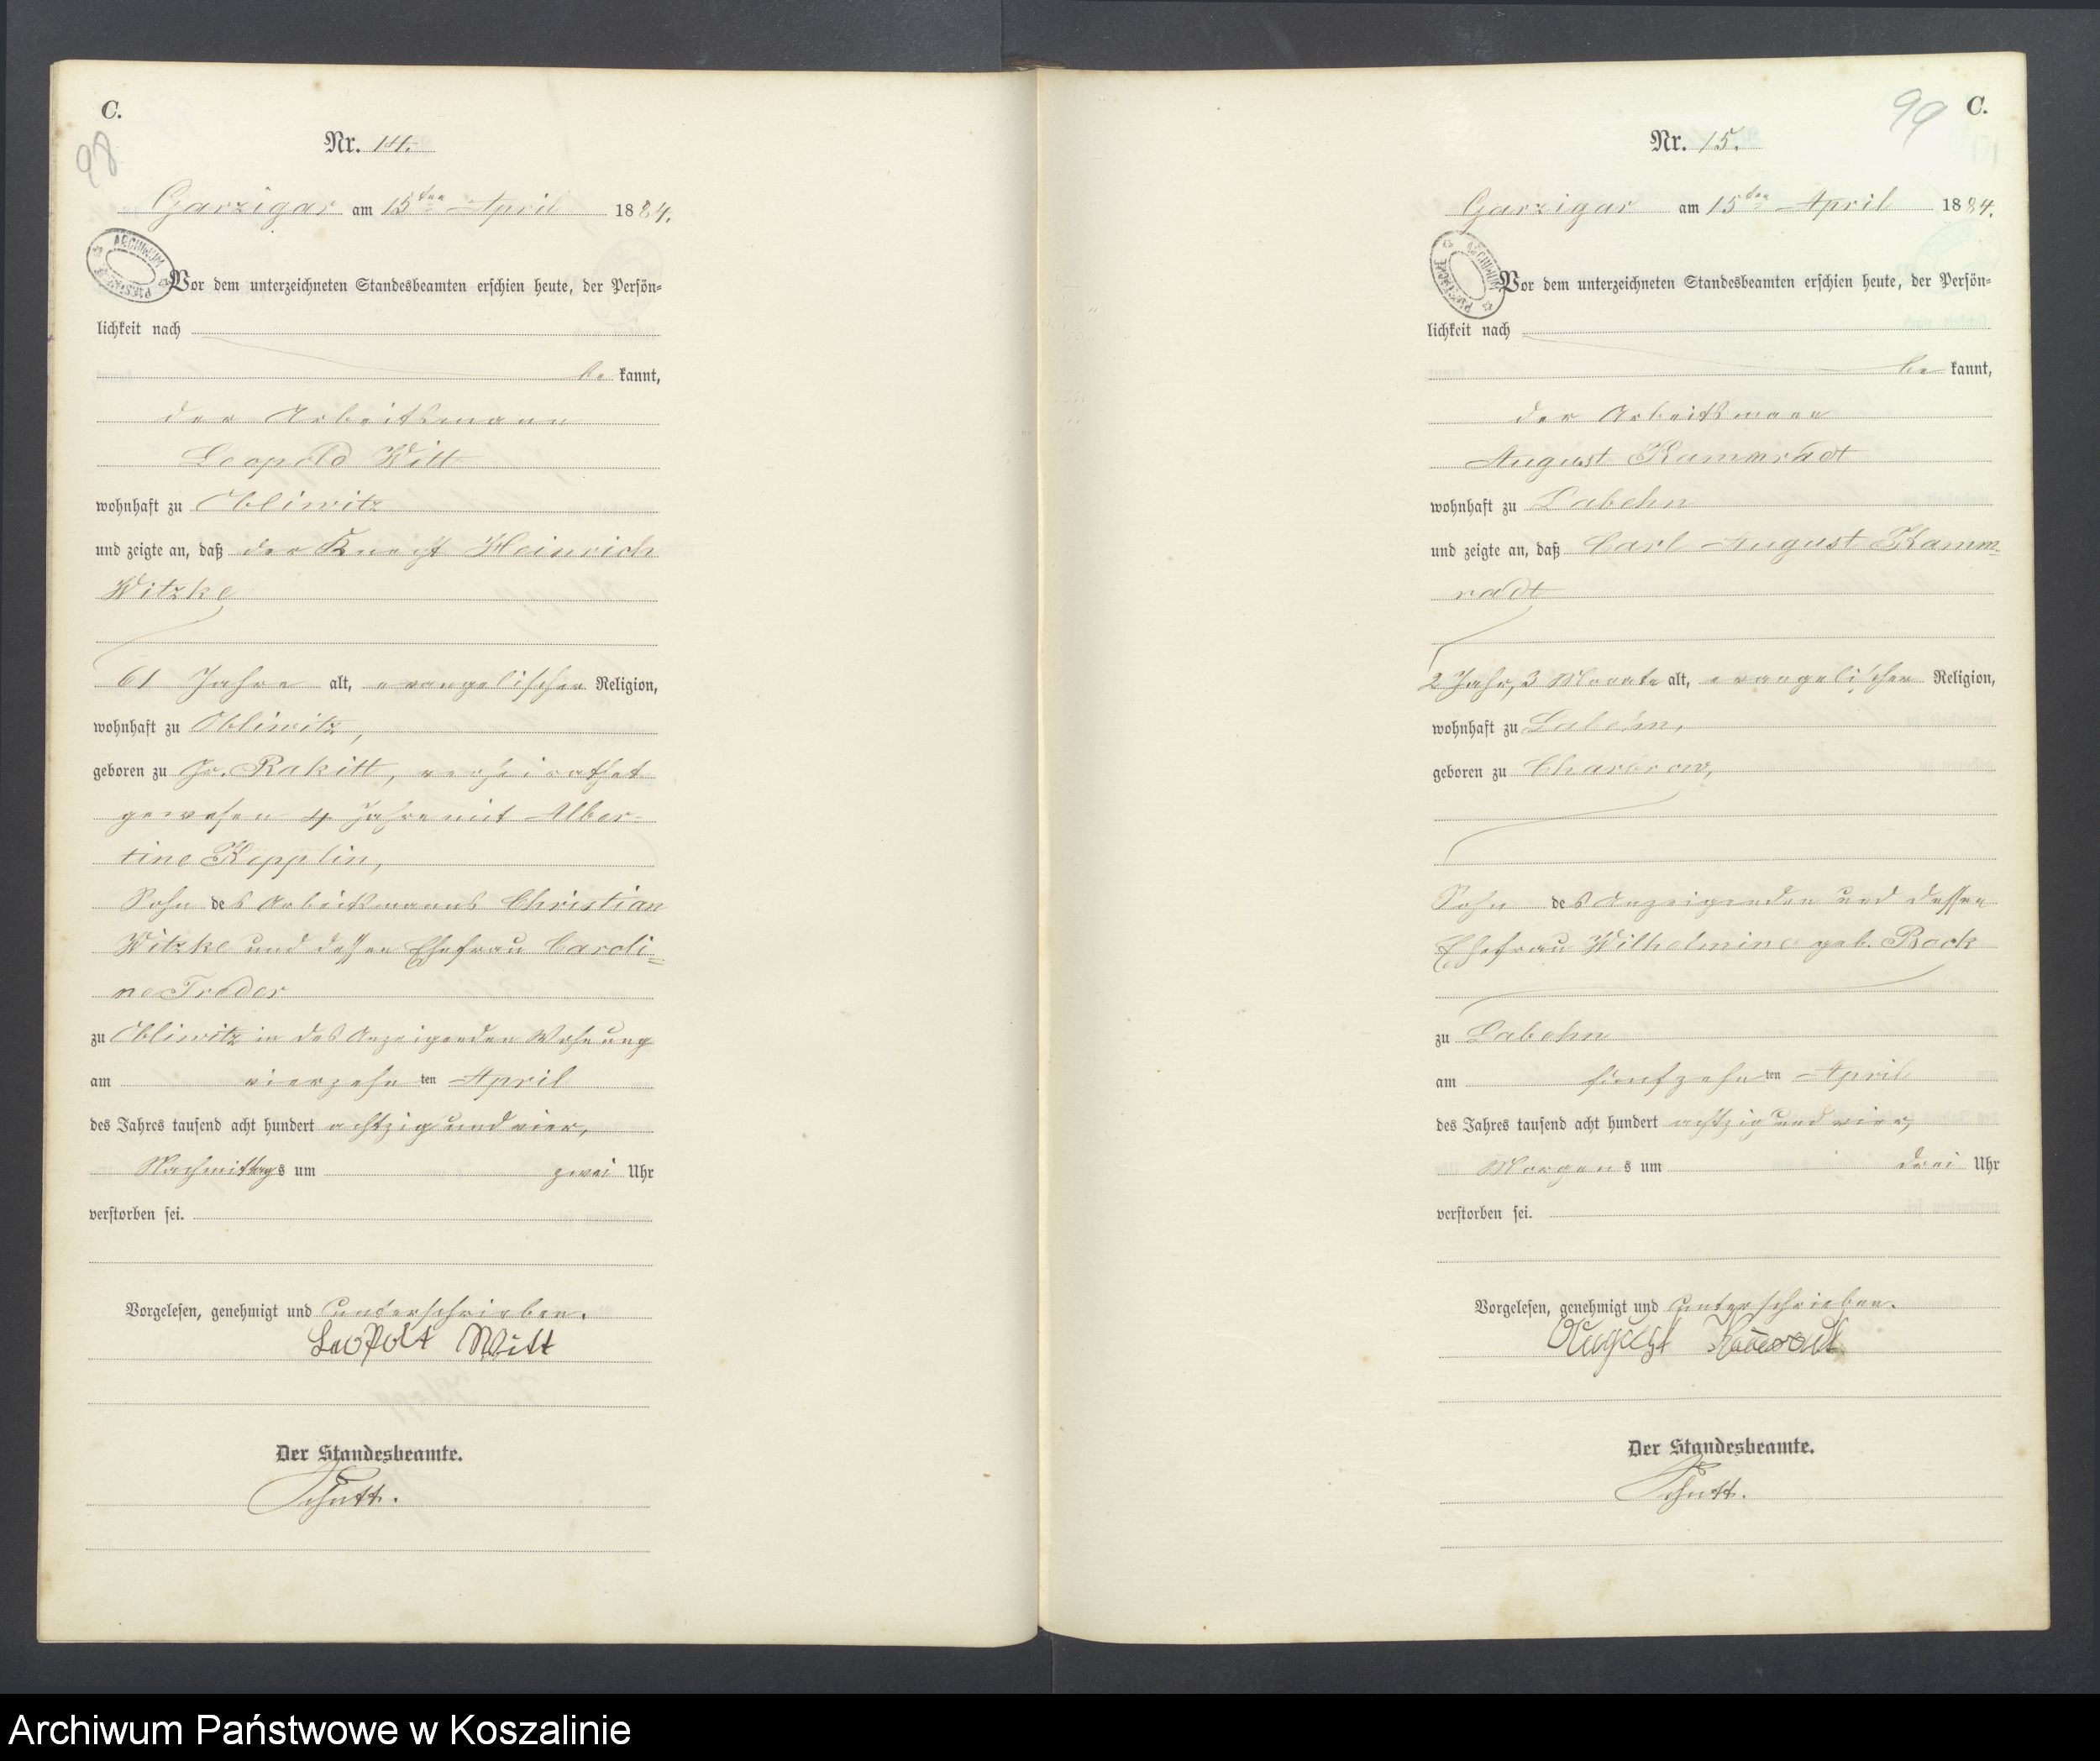 C.
98
Nr. 14.
Garzigar am 15ten April 1884.
ARCHIWUM PAŃSTWOWE
Vor dem unterzeichneten Standesbeamten erschien heute, der Persön=
lichkeit nach
be kannt,
der Arbeitsmann
Leopold Witt
wohnhaft zu Obliwitz
und zeigte an, daß der Knecht Heinrich
Witzke
61 Jahre alt, evangelischer Religion,
wohnhaft zu Obliwitz,
geboren zu Gr. Rakitt, verheirathet
gewesen 4 Jahre mit Alber-
tine Kepplin,
Sohn des Arbeitsmanns Christian
Witzke und dessen Ehefrau Caroli=
ne Treder
zu Obliwitz in des Anzeigenden Wohnung
am vierzehn ten April
des Jahres tausend acht hundert achtzig und vier,
Nachmittags um zwei Uhr
verstorben sei.
Vorgelesen, genehmigt und unterschrieben.
Leopolt Witt
Der Standesbeamte.
Schutt.
99 C.
Nr. 15.
Garzigar am 15ten April 1884.
ARCHIWUM PAŃSTWOWE
Vor dem unterzeichneten Standesbeamten erschien heute, der Persön=
lichkeit nach
be kannt,
der Arbeitsmann
August Kammradt
wohnhaft zu Labehn
und zeigte an, daß Carl August Kamm-
radt
2 Jahr, 3 Monate alt, evangelischer Religion,
wohnhaft zu Labehn,
geboren zu Charbrow,
Sohn des Anzeigenden und dessen
Ehefrau Wilhelmine geb. Back
zu Labehn
am fünfzehn ten April
des Jahres tausend acht hundert achtzig und vier,
Morgens um drei Uhr
verstorben sei.
Vorgelesen, genehmigt und unterschrieben.
August
Der Standesbeamte.
Schutt.
Archiwum Państwowe w Koszalinie